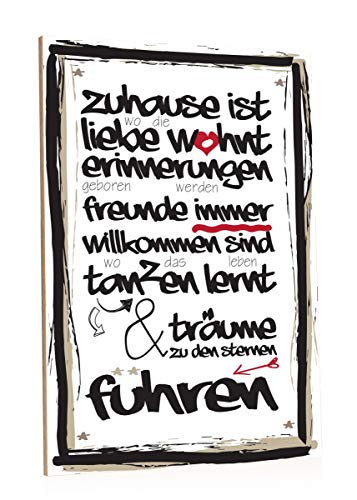 zuhause ist
wo die
liebe wohnt
erinnerungen
geboren werden
freunde immer
willkommen sind
wo das leben
tanzen lernt
& träume
zu den sternen
führen